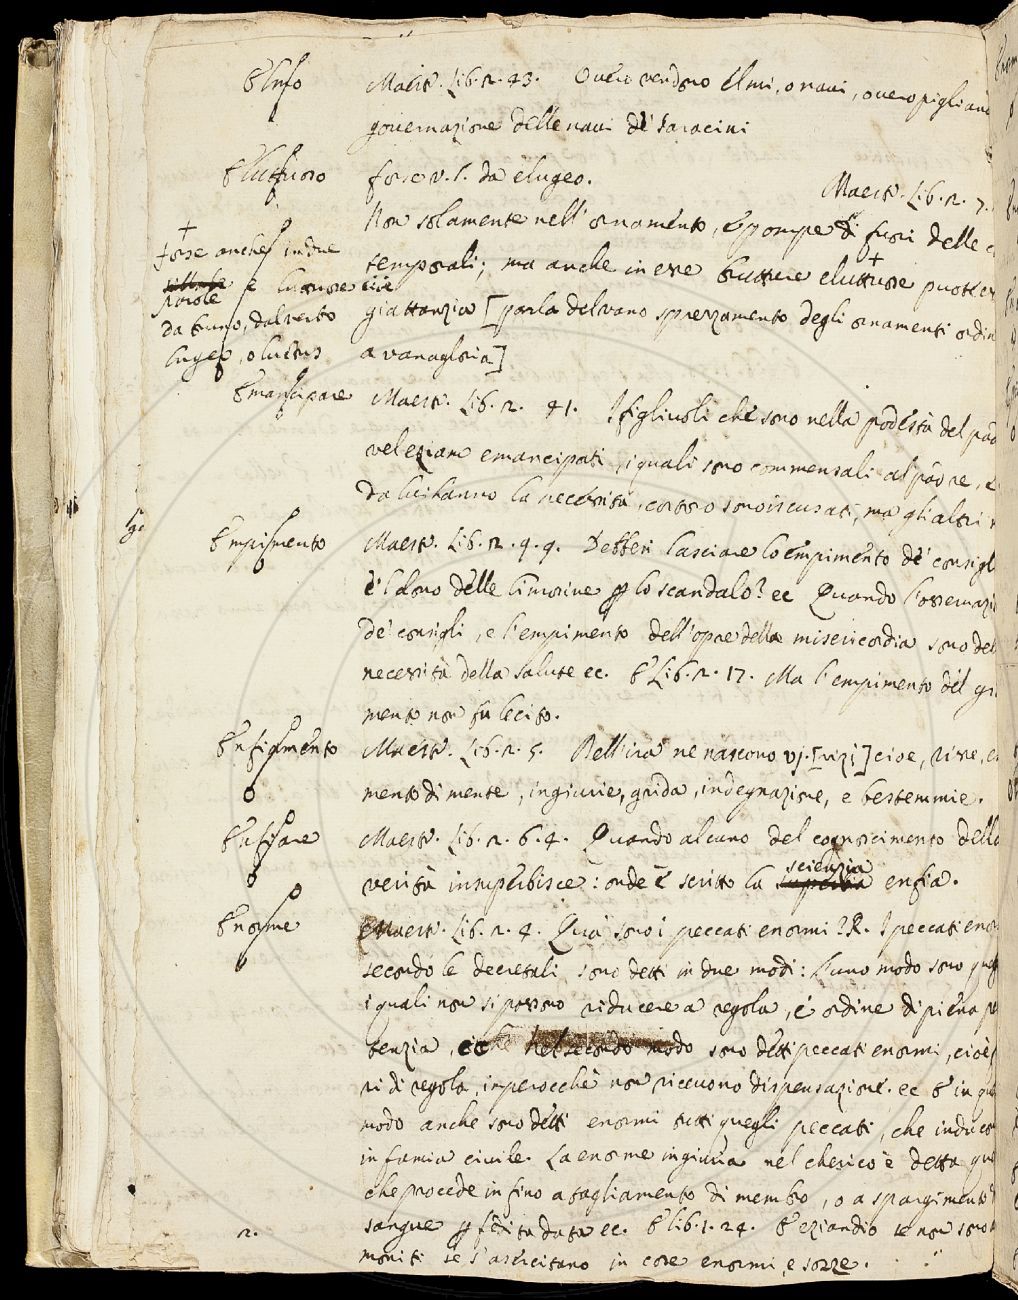 Elmo Maest. Lib. 2. 43. Overo vendono elmi, o navi, overo pigliano
governazione delle navi de' Saracini
Eluttuoso forse v. l. da elugeo. Maest. Lib. 2. 7.
Non solamente nell' ornamento, e pompe di fuori delle
temporali; ma anche in esse brutture eluttuose puote
giattanzia [parla del vano sprezzamento degli ornamenti
a vanagloria]
+ forse anche in due
sillabe
parole e luttuose cioè
da luno, dal verbo
lugeo, o luctus
Emancipare Maest. Lib. 2. 41. I figliuoli che sono nella podestà del
vel eziam emancipati, i quali sono commensali al padre, e
da lui hanno la necessità, costoro sono iscusati, ma gli altri
Empimento Maest. Lib. 2. 9. 4. Debbesi lasciare lo empimento de'
e 'l dono delle limosine p lo scandalo? ec Quando l'
de' consigli, e l' empimento dell' opre della misericordia sono
necessità della salute ec. E Lib. 2. 17. Ma l' empimento del
mento non fu lecito.
Enfiamento Maest. Lib. 2. 5. Dell' ira ne nascono vj. [vizj] cioè, risse,
mento di mente, ingiurie, grida, indegnazione, e bestemmie.
Enfiare Maest. Lib. 2. 6. 4. Quando alcuno del cognoscimento della
scienzia
verità insuperbisce: onde è scritto la superbia enfia.
Enorme Maest. Lib. 2. 4. Qua' sono i peccati enormi? R. I peccati
secondo le decretali sono detti in due modi: l' uno modo sono
i quali non si possono riducere a regola, e ordine di piena
tenzia, ec Nel secondo modo sono detti peccati enormi, cioè
ri di regola, imperocchè non ricevono dispensazione. ec E in
modo anche sono detti enormi tutti quegli peccati, che
infamia civile. La enorme ingiuria nel cherico è detta
che procede in fino a tagliamento di membro, o a spargimento
sangue p fedita data ec. E lib. 1. 24. E eziandio se non sono
moniti se s' asercitano in cose enormi, e sozze.
2.